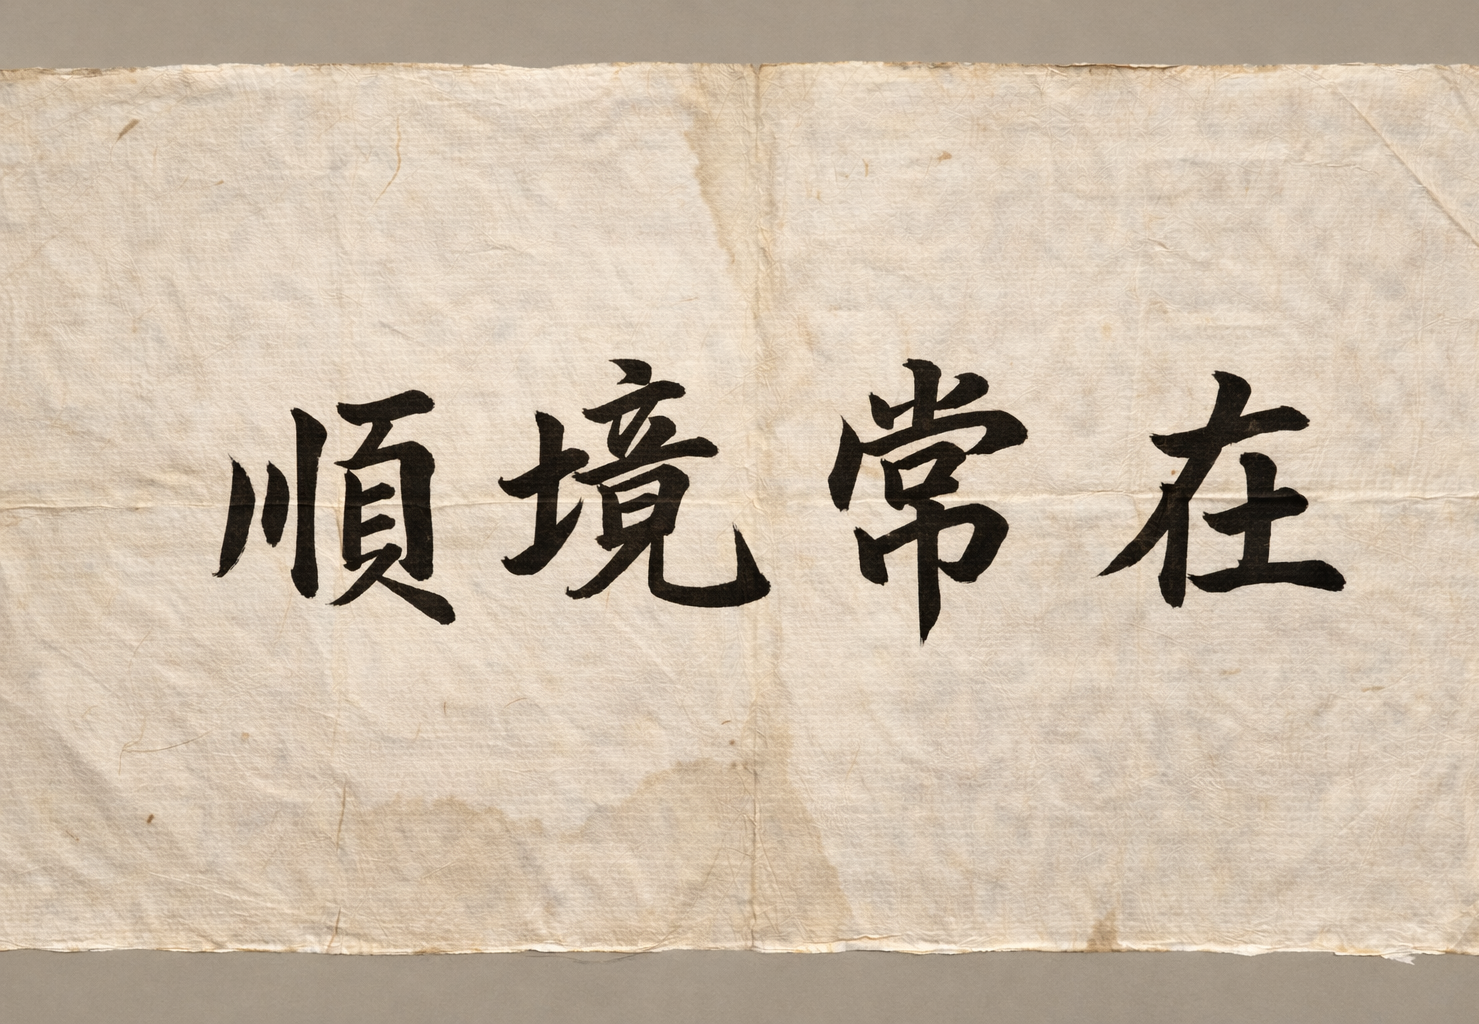 順境常在